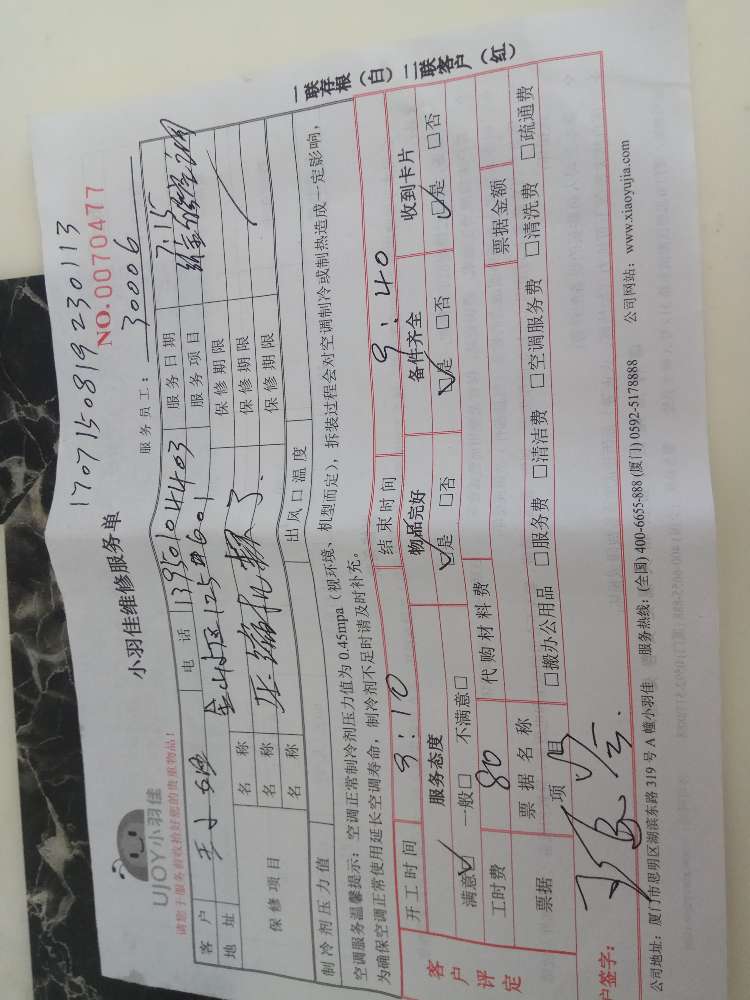 1707150819230113
NO.0070477
UJOY小羽佳
小羽佳维修服务单
请您于服务前收拾好您的贵重物品!
服务员工: 30006
客户 电话 13950104403 服务日期 7.15
地址 服务项目
保修项目 名称 保修期限
名称 保修期限
名称 保修期限
制冷剂压力值 出风口温度
空调服务温馨提示: 空调正常制冷剂压力值为 0.45mpa (视环境、机型而定), 拆装过程会对空调制冷或制热造成一定影响,
为确保空调正常使用延长空调寿命, 制冷剂不足时请及时补充。
一联存根(白) 二联客户(红)
客户评定
开工时间 9:10 结束时间 9:40
服务态度 物品完好 备件齐全 收到卡片
满意☑ 一般□ 不满意□ ☑是 □否 ☑是 □否 ☑是 □否
工时费 80 代购材料费
票据 票据名称 票据金额
项目 □搬办公用品 □服务费 □清洁费 □空调服务费 □清洗费 □疏通费
户签字:
公司地址: 厦门市思明区湖滨东路 319 号 A 幢小羽佳 服务热线: (全国) 400-6655-888 (厦门) 0592-5178888 公司网站: www.xiaoyujia.com